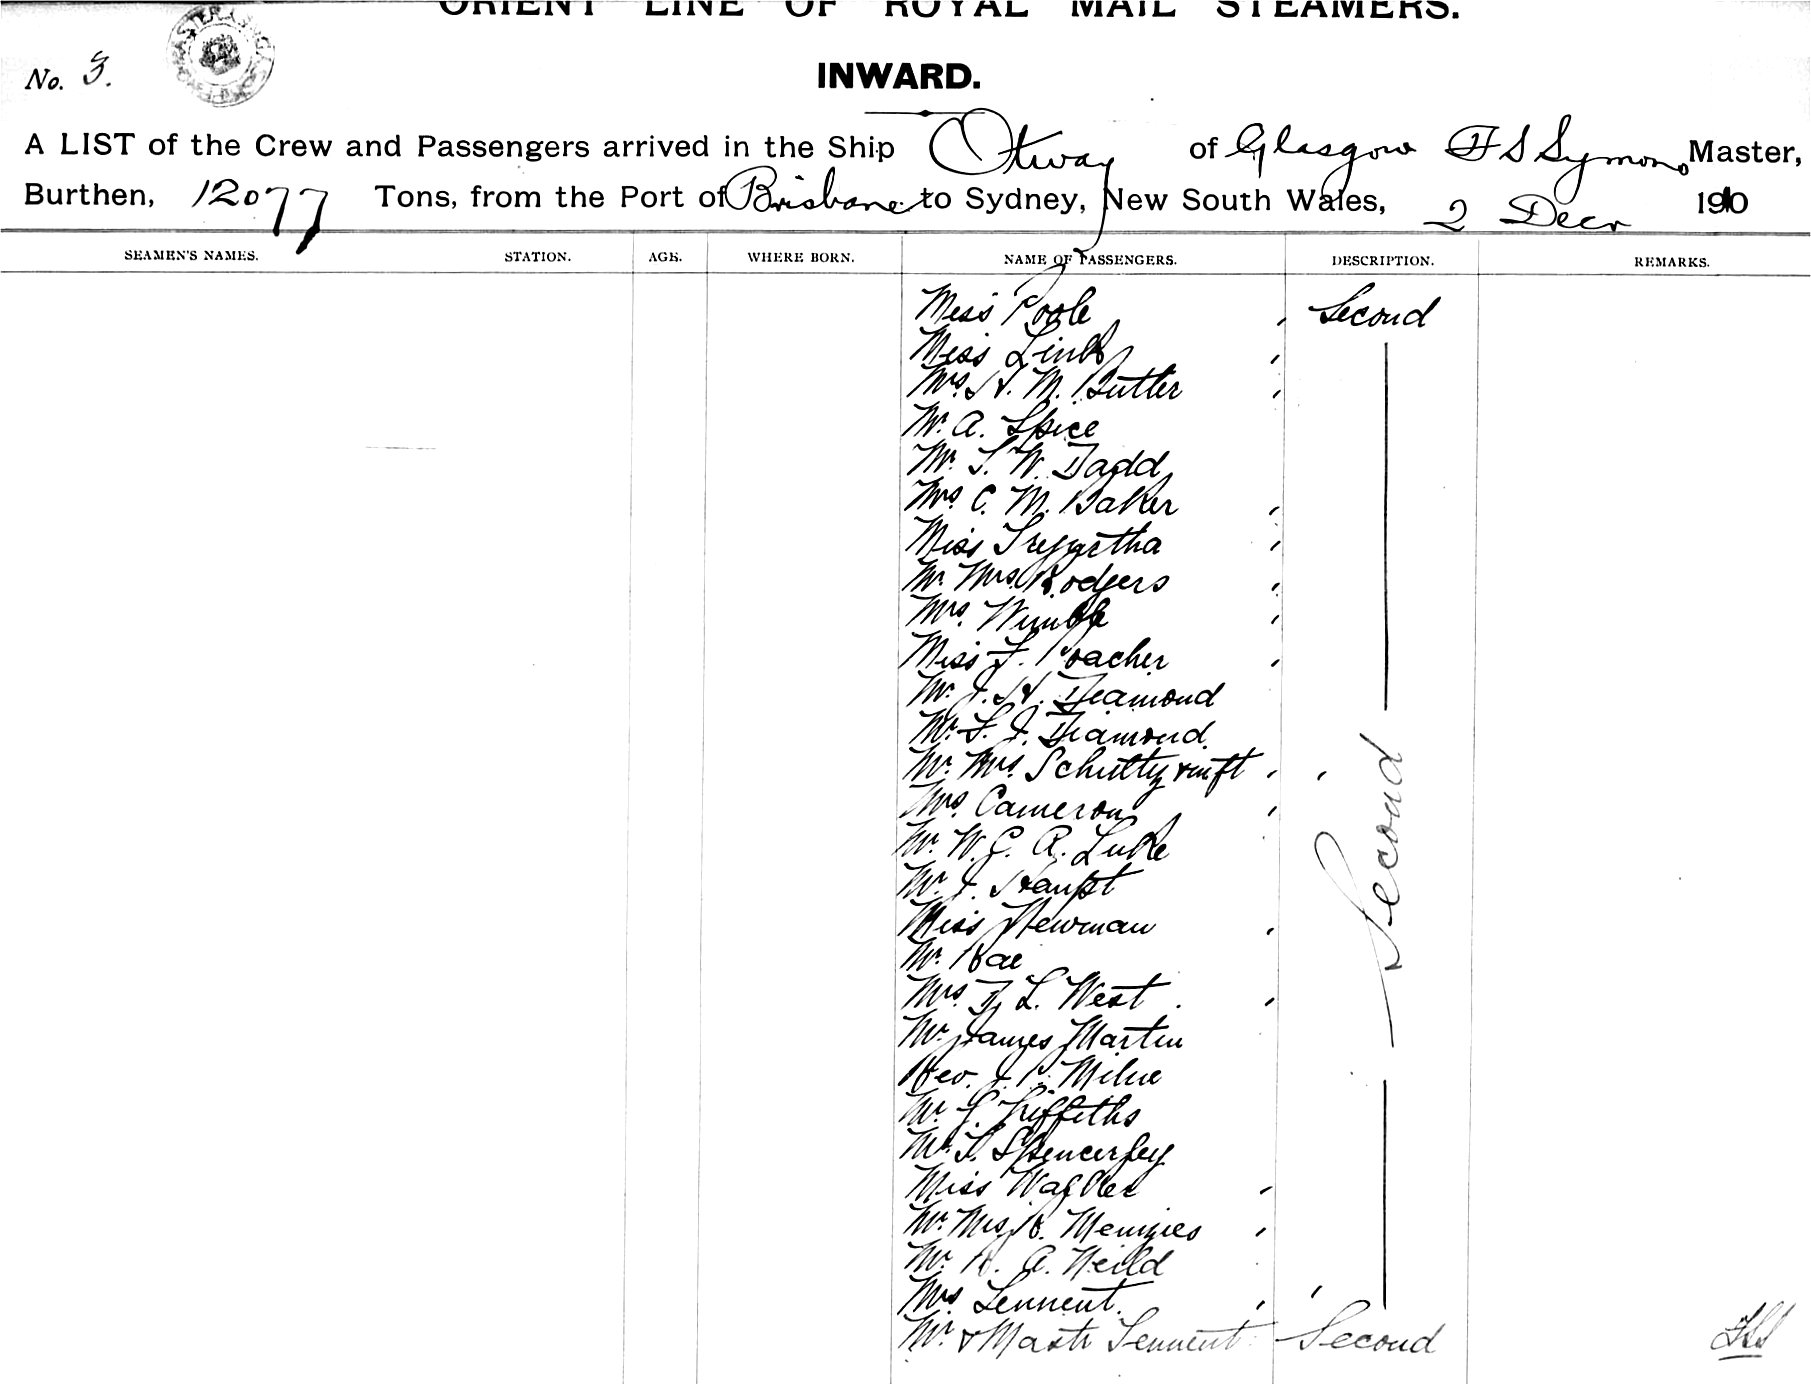 ORIENT LINE OF ROYAL MAIL STEAMERS.
No. 3.
INWARD.
A LIST of the Crew and Passengers arrived in the Ship Otway of Glasgow F S Symons Master,
Burthen, 12077 Tons, from the Port of Brisbane to Sydney, New South Wales, 2 Decr 1910
SEAMEN'S NAMES. STATION. AGE. WHERE BORN. NAME OF PASSENGERS. DESCRIPTION. REMARKS.
Miss Poole Second
Miss Link
Mrs. H. M. Butler
Mr. A. Spice
Mr. S. W. Dadd
Mrs. C. M. Baker
Miss Tregartha
Mr. Mrs. Rodgers
Mrs. Wimble
Miss F. Poacher
Mr. J. H. Diamond
Mr. F. J. Diamond
Mr. Mrs.
Mrs. Cameron
Mr. W. G. A. Luke
Mr. J. Haupt
Miss Newman
Mr. Rae
Mrs. L. West
Second
Mr. James Martin
Rev. J. P. Milne
Mr. G. Griffiths
Mr.
Miss
Mr. Mrs. R. Menzies
Mr. R. A. Neild
Mrs. Tennent
Mr. & Mastr Tennent Second
FSS